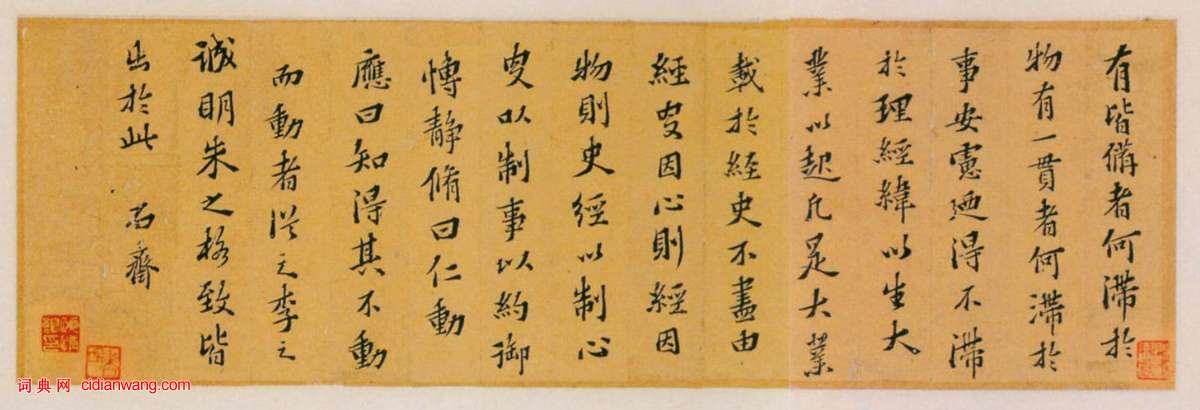 有皆備者何滯於
物有一貫者何滯於
事安慮迺得不滯
於理經緯以生大
業以起凡是大業
載於經史不盡由
經叓因心則經因
物則史經以制心
叓以制事以約御
慱靜脩曰仁動
應曰知得其不動
而動者從之李之
誠明朱之格致皆
出於此 石齋
词典网 cidianwang.com